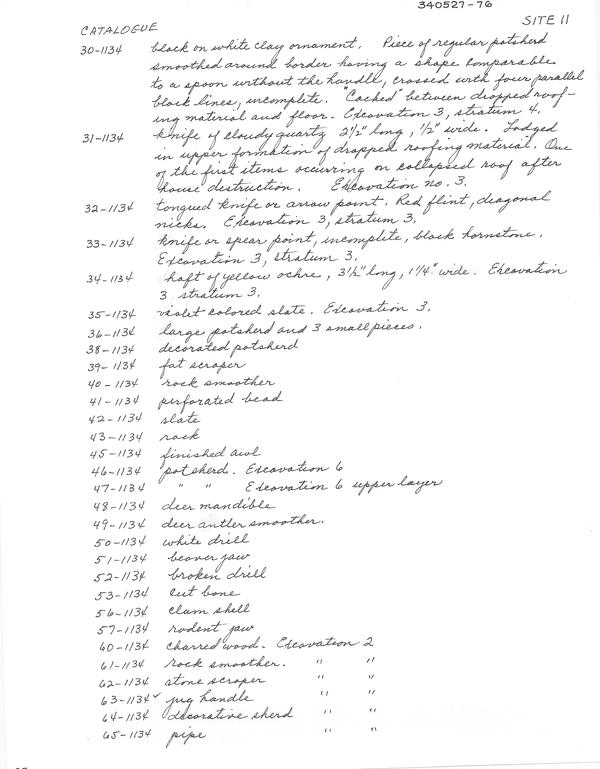 340527-76
SITE 11
CATALOGUE
30-1134 black on white clay ornament. Piece of regular potsherd
smoothed around border having a shape comparable
to a spoon without the handle, crossed with four parallel
black lines, incomplete. "Cached" between dropped roof-
ing material and floor. Excavation 3, stratum 4.
31-1134 knife of cloudy quartz 2½" long, ½" wide. Lodged
in upper formation of dropped roofing material. One
of the first items occurring on collapsed roof after
house destruction. Excavation no. 3.
32-1134 tongued knife or arrow point. Red flint, diagonal
nicks. Excavation 3, stratum 3.
33-1134 knife or spear point, incomplete, black hornstone.
Excavation 3, stratum 3.
34-1134 haft of yellow ochre, 3½" long, 1¼" wide. Excavation
3 stratum 3.
35-1134 violet colored slate. Excavation 3.
36-1134 large potsherd and 3 small pieces.
38-1134 decorated potsherd
39-1134 fat scraper
40-1134 rock smoother
41-1134 perforated bead
42-1134 slate
43-1134 rock
45-1134 finished awl
46-1134 potsherd. Excavation 6
47-1134 " " Excavation 6 upper layer
48-1134 deer mandible
49-1134 deer antler smoother.
50-1134 white drill
51-1134 beaver jaw
52-1134 broken drill
53-1134 cut bone
56-1134 clam shell
57-1134 rodent jaw
60-1134 charred wood. Excavation 2
61-1134 rock smoother. " "
62-1134 stone scraper " "
63-1134✓ jug handle " "
64-1134 decorative sherd " "
65-1134 pipe " "